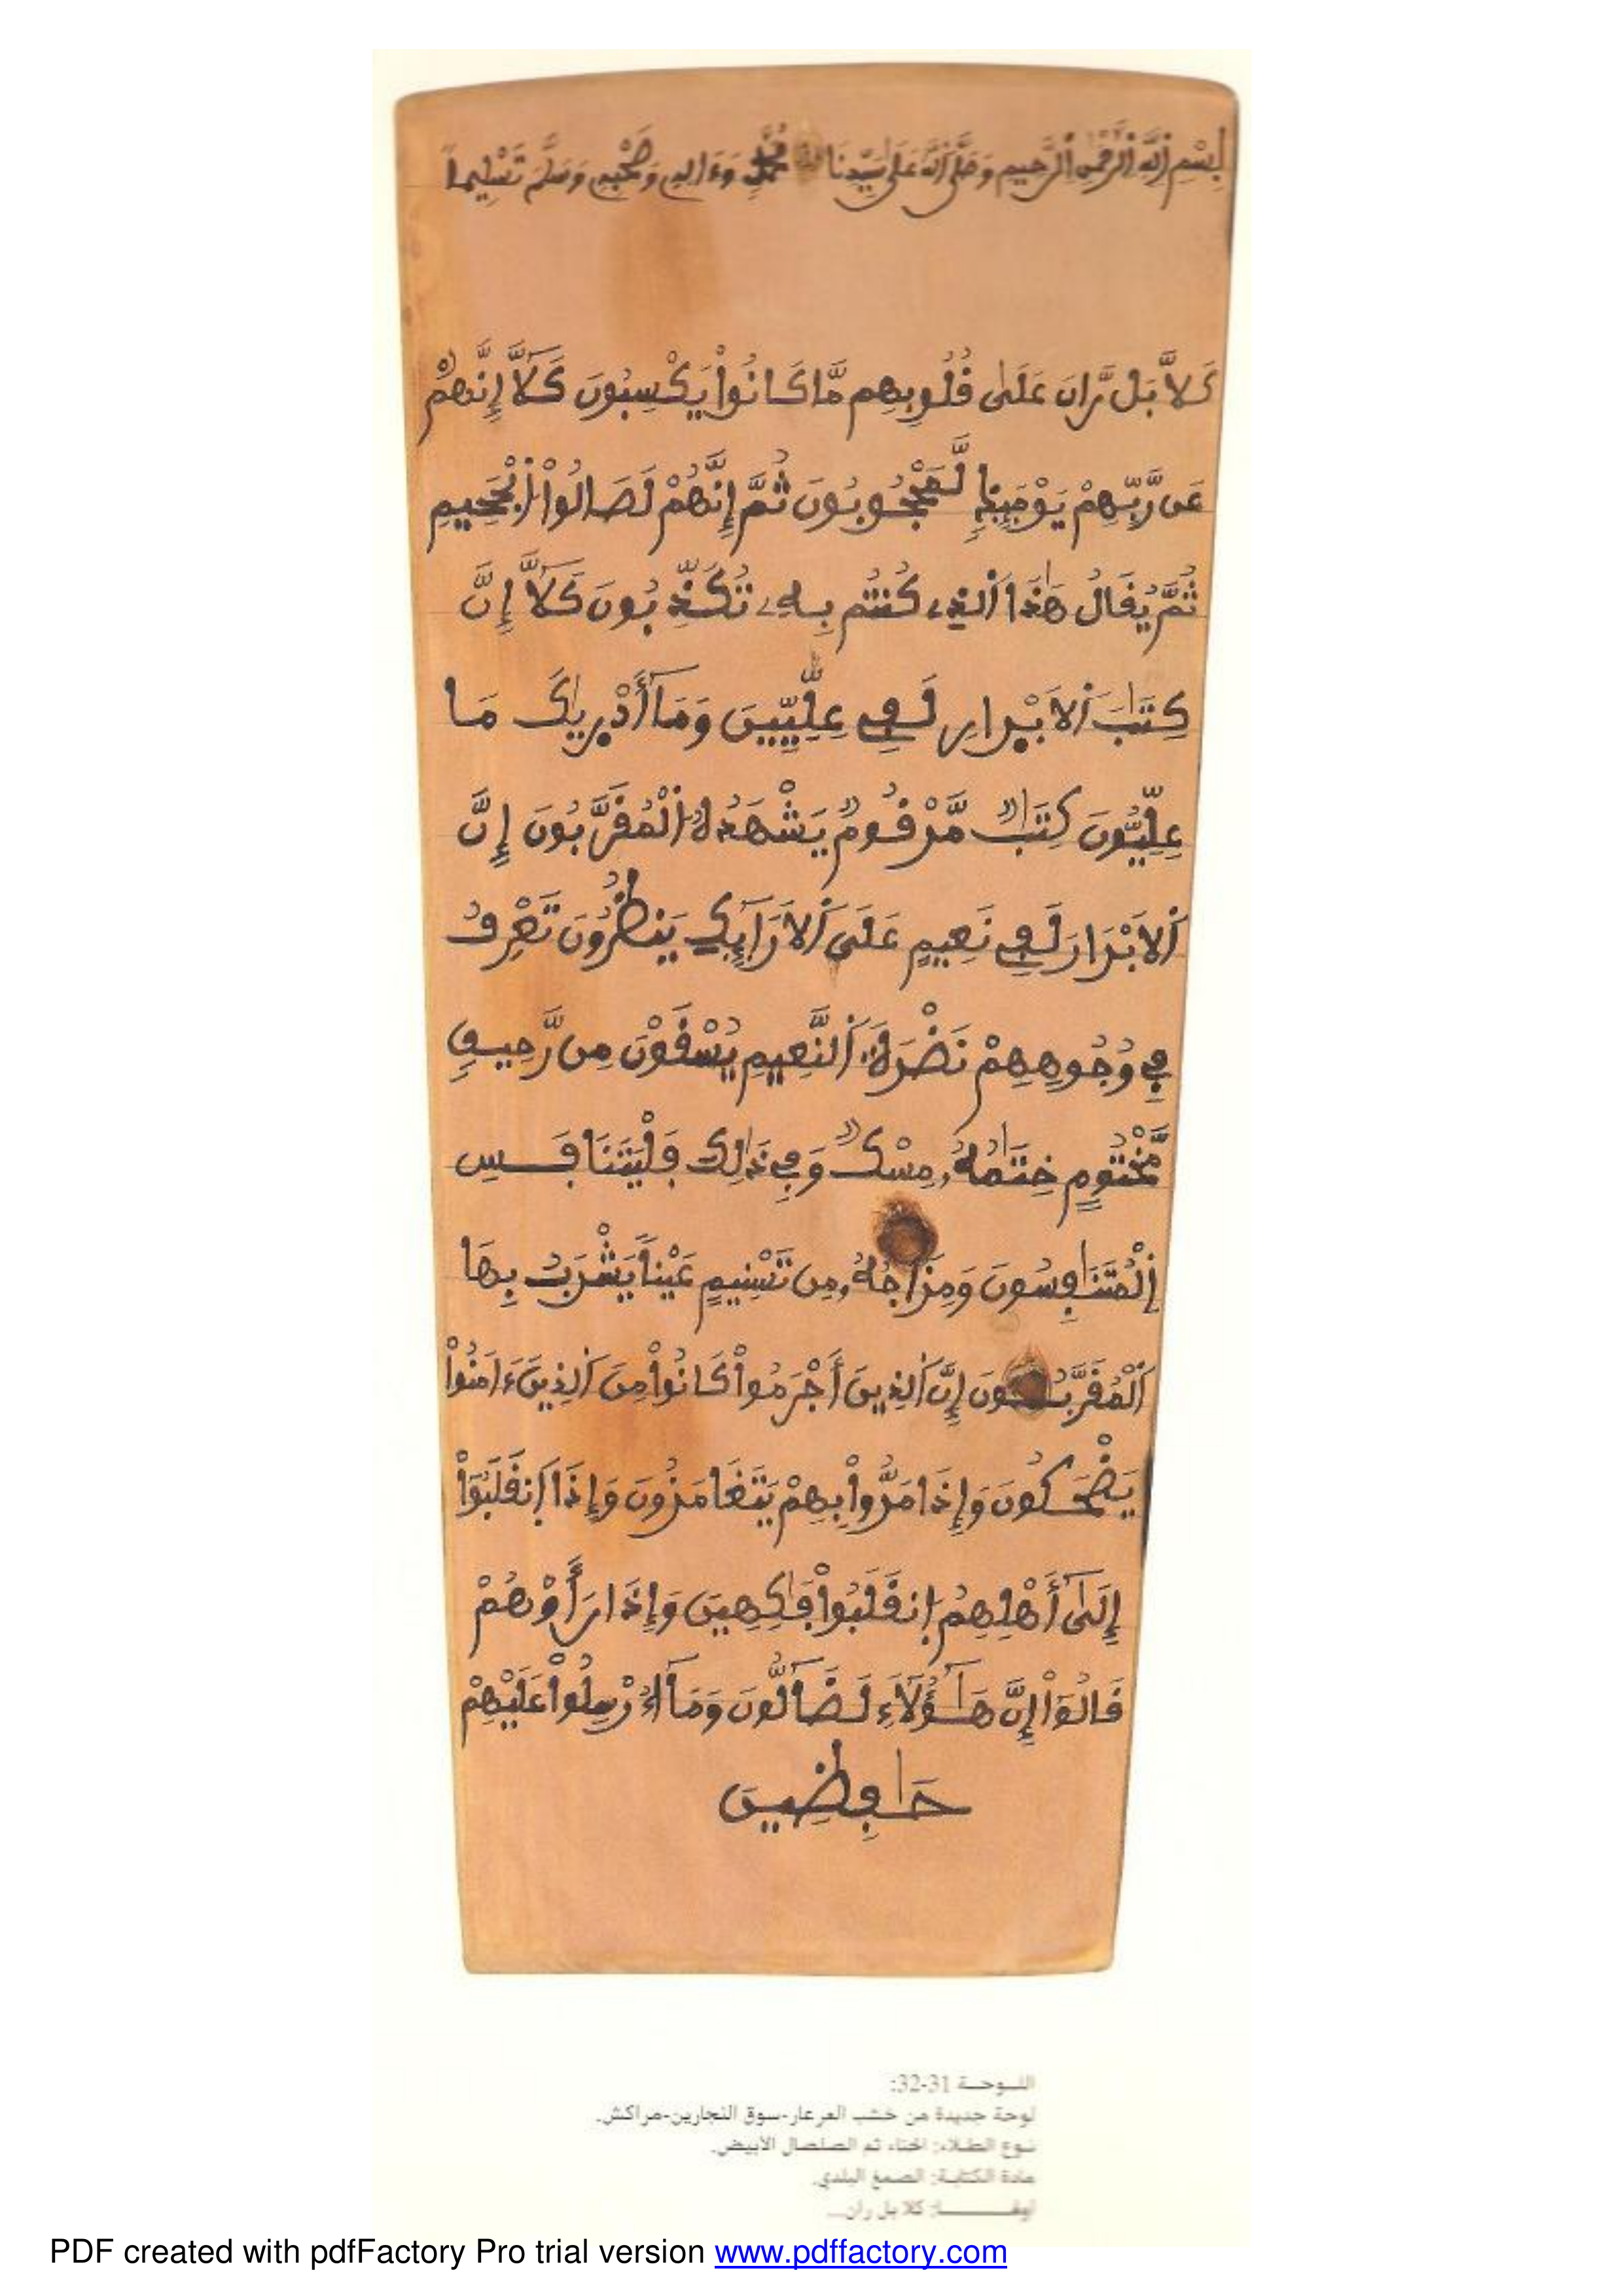 بِسْمِ اِللَّهِ اِلرَّحْمَٰنِ اِلرَّحِيمِ وَصَلَّى اَللَّهُ عَلَىٰ سَيِّدِنَا مُحَمَّدٍ وَءَالِهِ وَصَحْبِهِ وَسَلَّمَ تَسْلِيماً
كَلَّا بَل رَّانَ عَلَىٰ قُلُوبِهِم مَّا كَانُواْ يَكْسِبُونَ كَلَّآ إِنَّهُمْ
عَن رَّبِّهِمْ يَوْمَئِذٍ لَّمَحْجُوبُونَ ثُمَّ إِنَّهُمْ لَصَالُواْ اُلْجَحِيمِ
ثُمَّ يُقَالُ هَٰذَا اَلذِے كُنتُم بِهِۦ تُكَذِّبُونَ كَلَّآ إِنَّ
كِتَٰبَ اَلَابْرارِ لَفِے عِلِّيِّينَ وَمَآ أَدْرٜيٰكَ مَا
عِلِّيُّونَ كِتَٰبٌ مَّرْقُومٌ يَشْهَدُهُ اُلْمُقَرَّبُونَ إِنَّ
اَلَابْرَارَ لَفِے نَعِيمٍ عَلَى اَلَارَآئِكِ يَنظُرُونَ تَعْرِفُ
فِے وُجُوهِهِمْ نَضْرَةَ اَلنَّعِيمِ يُسْقَوْنَ مِن رَّحِيقٍ
مَّخْتُومٍ خِتَٰمُهُۥ مِسْكٌ وَفِے ذَٰلِكَ فَلْيَتَنَافَسِ
اِلْمُتَنَٰفِسُونَ وَمِزَاجُهُۥ مِن تَسْنِيمٍ عَيْناً يَشْرَبُ بِهَا
اَلْمُقَرَّبُونَ إِنَّ اَلذِينَ أَجْرَمُواْ كَانُواْ مِنَ اَلذِينَ ءَامَنُواْ
يَضْحَكُونَ وَإِذَا مَرُّواْ بِهِمْ يَتَغَامَزُونَ وَإِذَا اَنقَلَبُوٓاْ
إِلَىٰٓ أَهْلِهِمُ اِنقَلَبُواْ فَٰكِهِينَ وَإِذَا رَأَوْهُمْ
قَالُوٓاْ إِنَّ هَٰٓؤُلَآءِ لَضَآلُّونَ وَمَآ أُرْسِلُواْ عَلَيْهِمْ
حَٰفِظِينَ
اللـوحـة 31-32:
لوحة جديدة من خشب العرعار-سوق النجارين-مراكش.
نـوع الطـلاء: الحناء ثم الصلصال الأبيض.
مادة الكتابـة: الصمغ البلدي.
أولهـــا: كلا بل ران...
PDF created with pdfFactory Pro trial version www.pdffactory.com